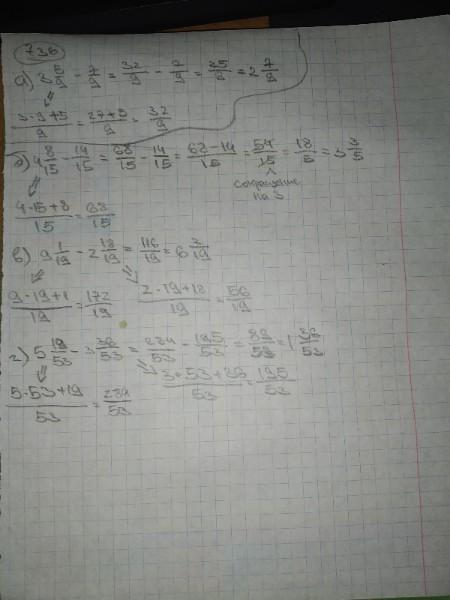 736
а) 3 5/9 - 7/9 = 32/9 - 7/9 = 25/9 = 2 7/9
(3·9+5)/9 = (27+5)/9 = 32/9
б) 4 8/15 - 14/15 = 68/15 - 14/15 = (68-14)/15 = 54/15 = 18/5 = 3 3/5
сокращение
на 3
(4·15+8)/15 = 68/15
в) 9 1/19 - 2 18/19 = 116/19 = 6 2/19
(9·19+1)/19 = 172/19 (2·19+18)/19 = 56/19
г) 5 19/53 - 3 36/53 = 284/53 - 195/53 = 89/53 = 1 36/53
(5·53+19)/53 = 284/53 195/53